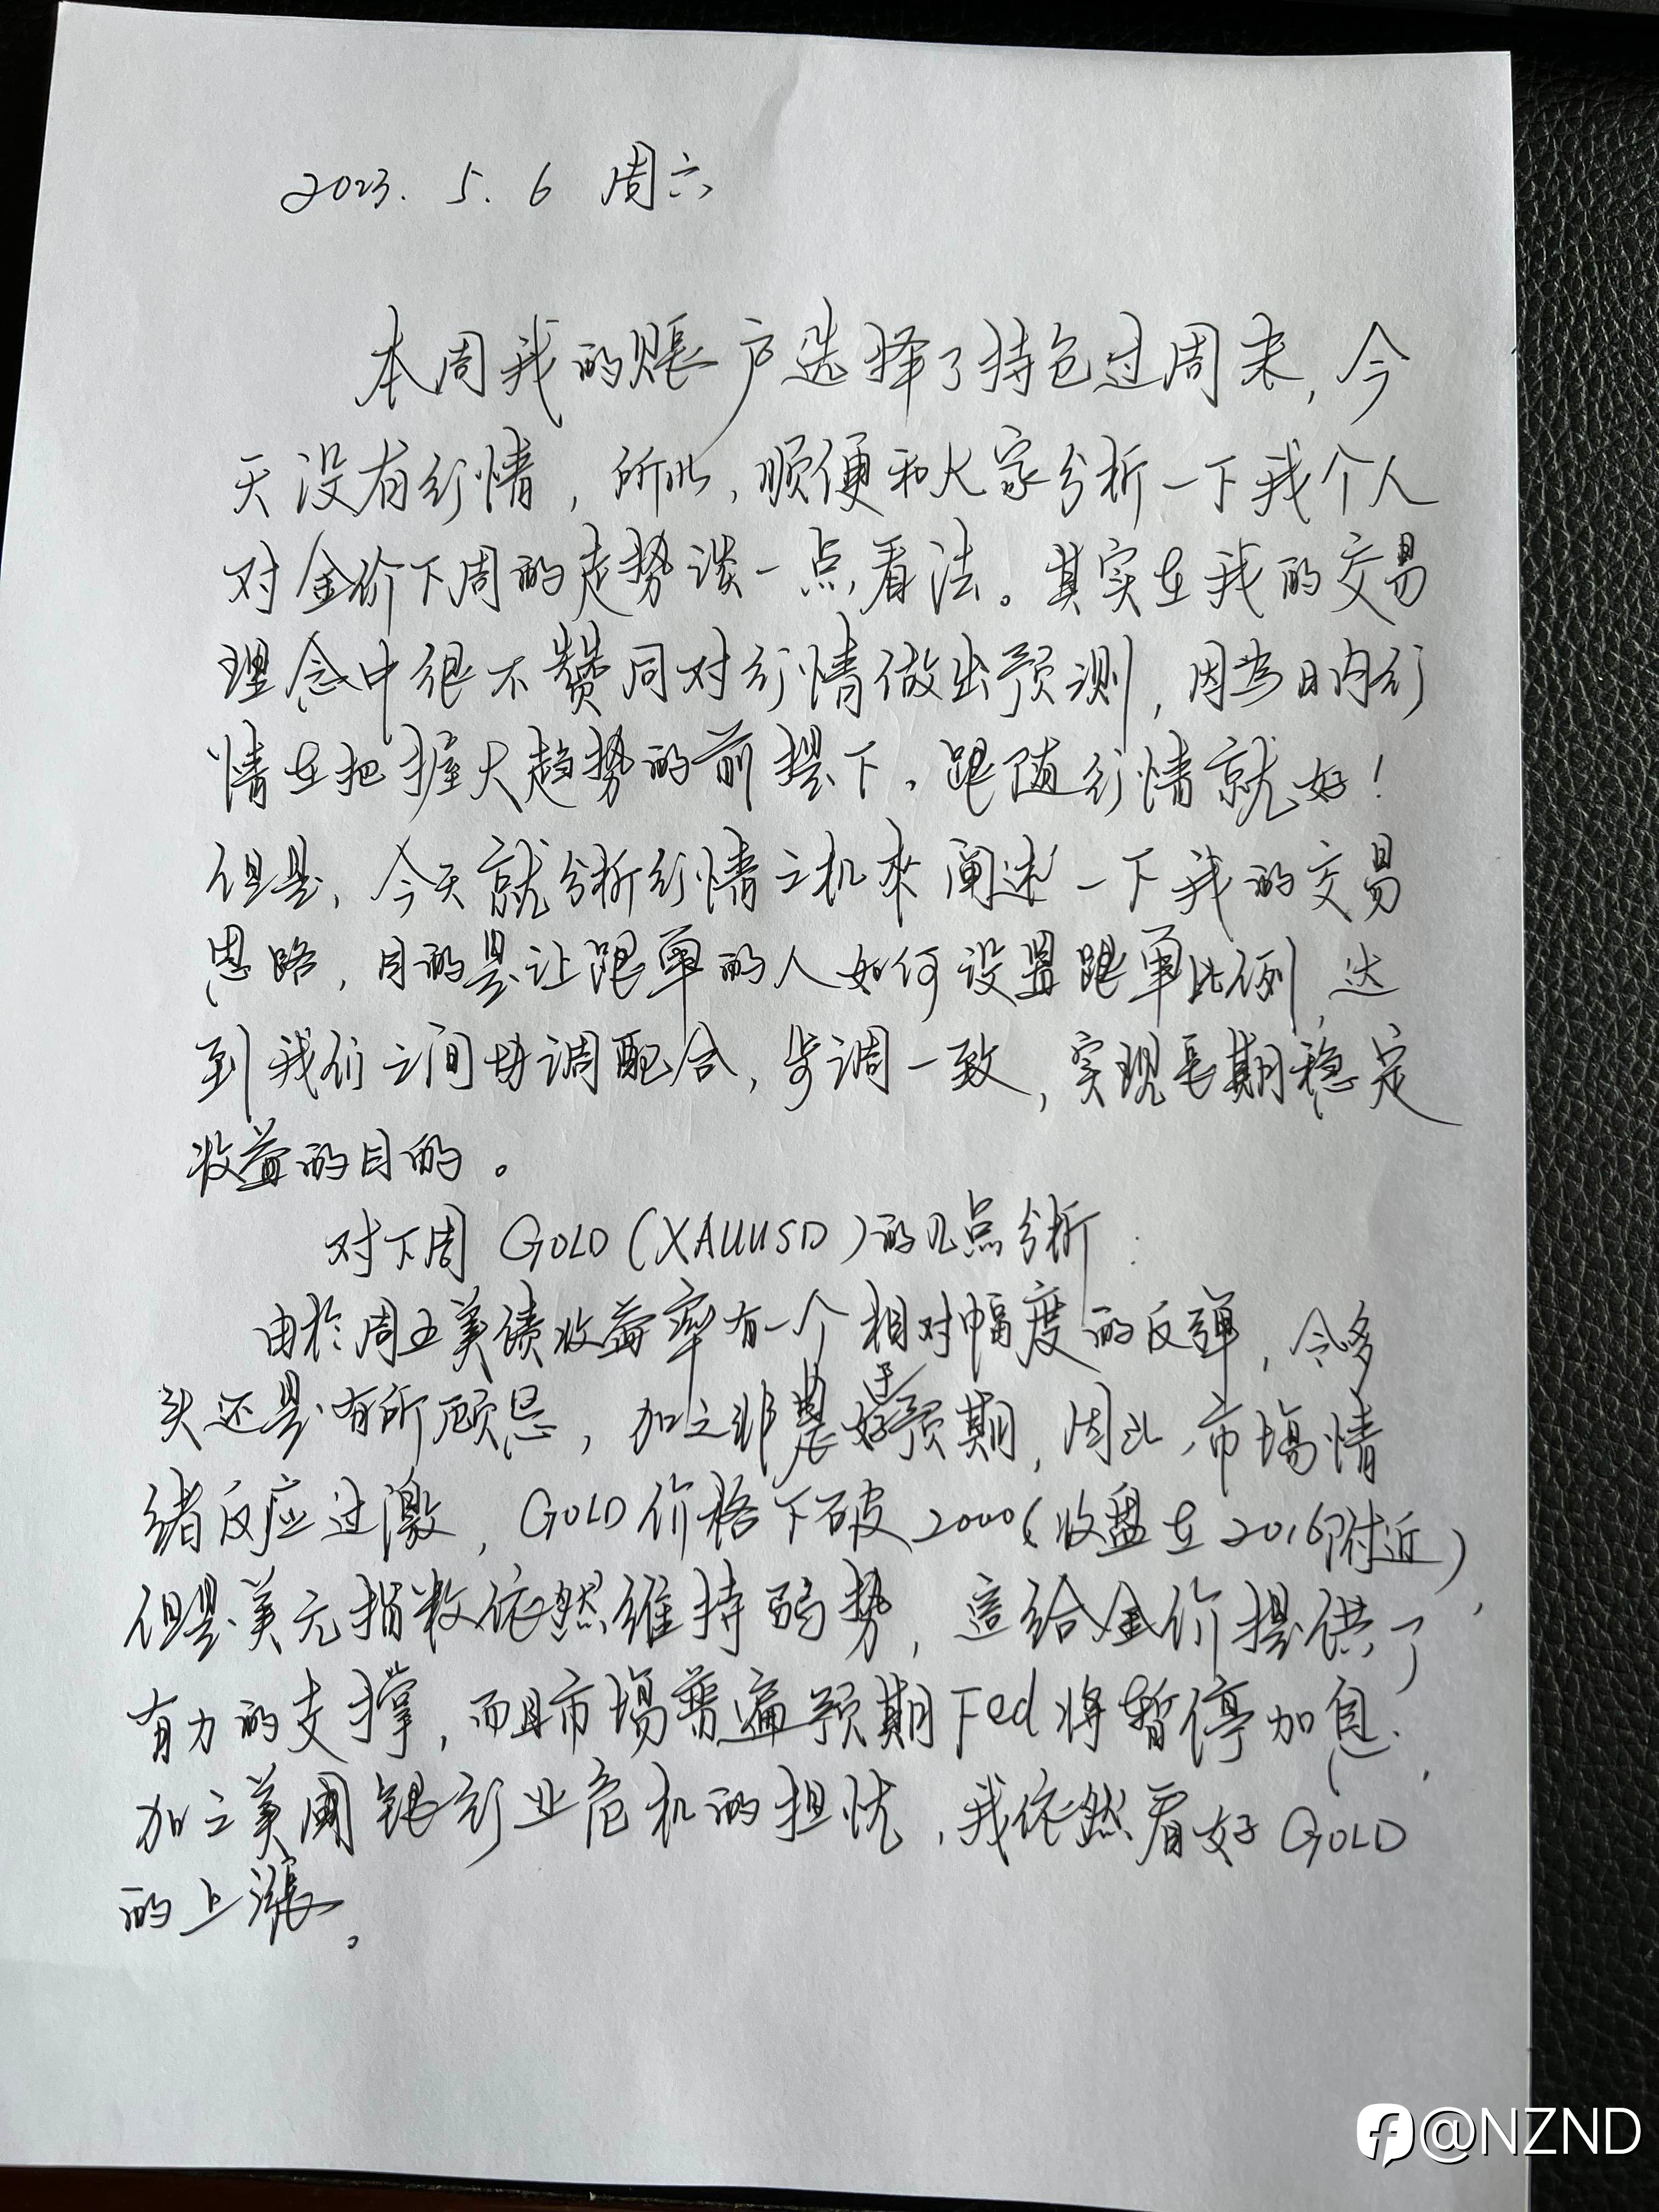 2023. 5. 6 周六
本周我的账户选择了持仓过周末, 今
天没有行情, 所以, 顺便和大家分析一下我个人
对金价下周的走势谈一点看法。其实在我的交易
理念中很不赞同对行情做出预测, 因为日内行
情在把握大趋势的前提下, 跟随行情就好!
但是, 今天就分析行情之机来阐述一下我的交易
思路, 目的是让跟单的人如何设置跟单比例, 达
到我们之间协调配合, 步调一致, 实现长期稳定
收益的目的。
对下周 GOLD (XAUUSD) 的几点分析:
由於周五美债收益率有一个相对幅度的反弹, 令多
头还是有所顾忌, 加之非農好于预期, 因此, 市場情
绪反应过激, GOLD 价格下破2000(收盘在2016附近)
但是美元指数依然维持弱势, 這给金价提供了
有力的支撑, 而且市場普遍预期Fed将暂停加息.
加之美國银行业危机的担忧, 我依然看好GOLD
的上漲。
@NZND